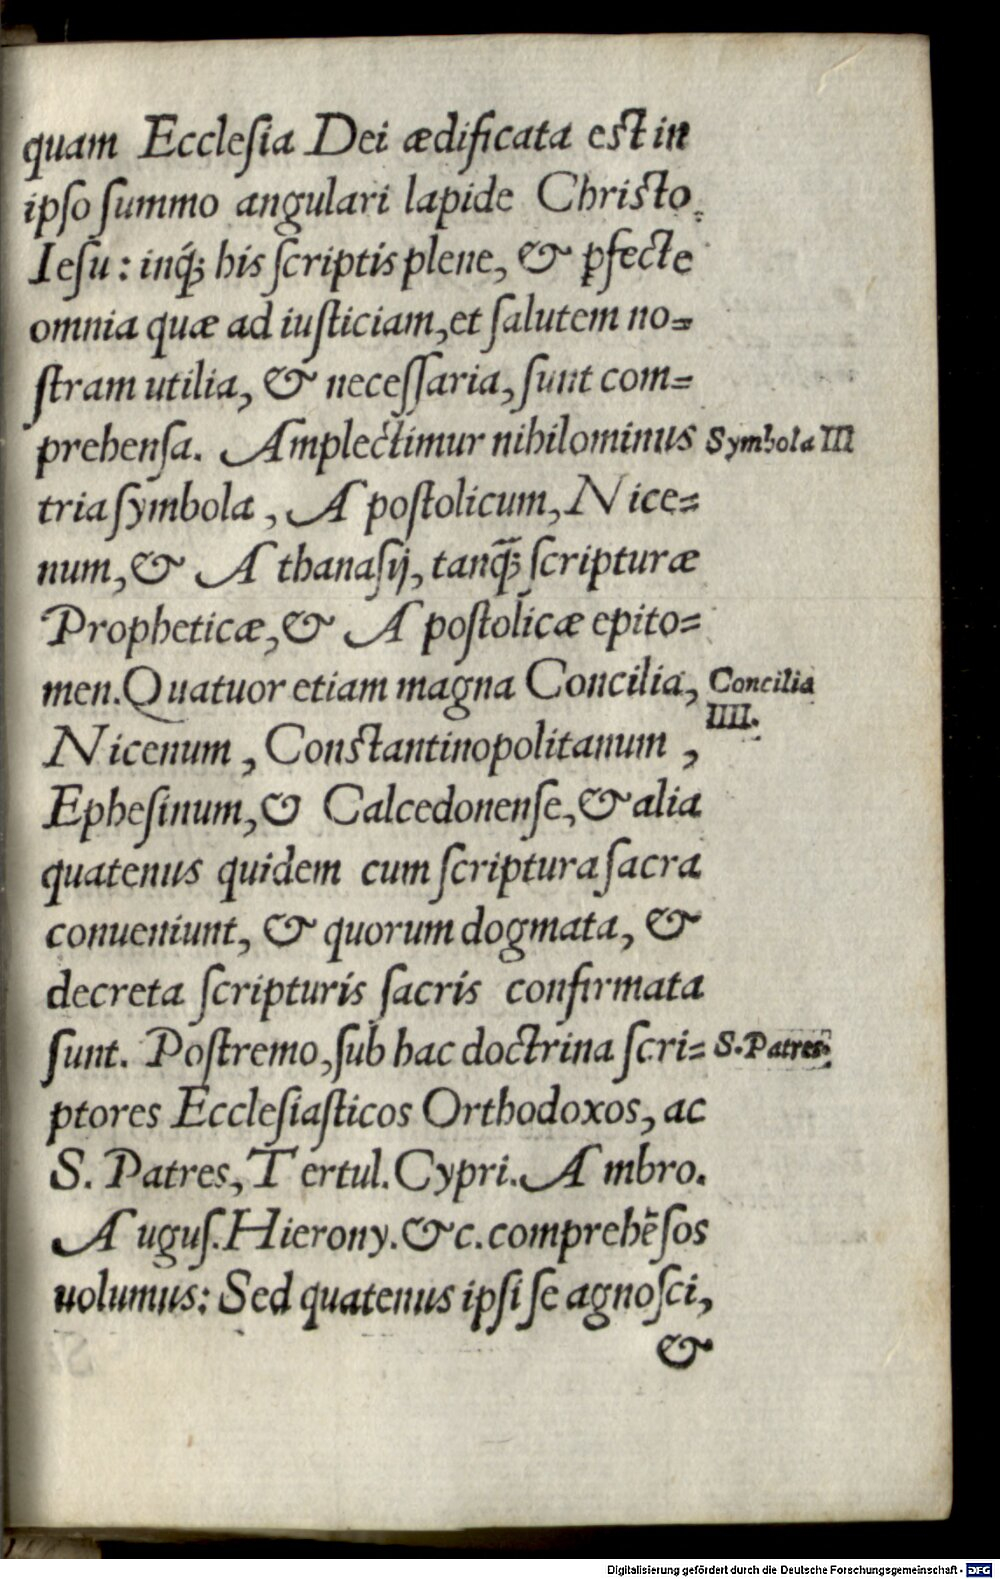 quam Ecclesia Dei ædificata est in
ipso summo angulari lapide Christo
Iesu: inq́ꝫ his scriptis plene, & ꝑfecte
omnia quæ ad iusticiam, et salutem no=
stram utilia, & necessaria, sunt com=
prehensa. Amplectimur nihilominus
Symbola III
tria symbola, Apostolicum, Nice=
num, & Athanasij, tanq̃ꝫ scripturæ
Propheticæ, & Apostolicæ epito=
men. Quatuor etiam magna Concilia,
Concilia
IIII.
Nicenum, Constantinopolitanum,
Ephesinum, & Calcedonense, & alia
quatenus quidem cum scriptura sacra
conueniunt, & quorum dogmata, &
decreta scripturis sacris confirmata
sunt. Postremo, sub hac doctrina scri=
S. Patres.
ptores Ecclesiasticos Orthodoxos, ac
S. Patres, Tertul. Cypri. Ambro.
Augus. Hierony. &c. comprehẽsos
uolumus: Sed quatenus ipsi se agnosci,
&
Digitalisierung gefördert durch die Deutsche Forschungsgemeinschaft - DFG